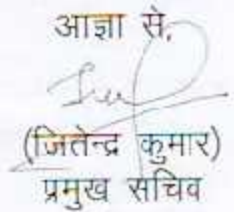 आज्ञा से,
(जितेन्द्र कुमार)
प्रमुख सचिव